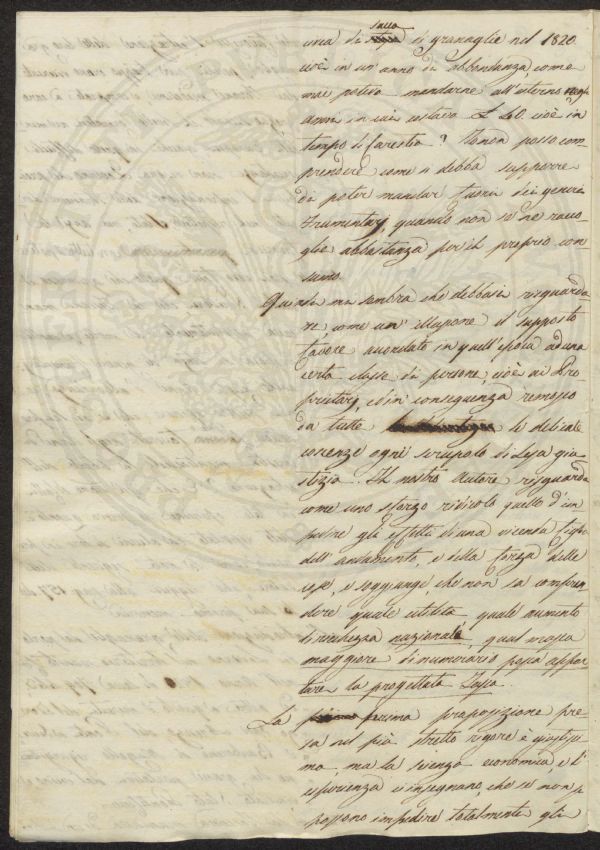 sacco
di granaglie nel 1820
cioè in un' anno di abbondanza, come
mai potevo mandarne all'esterno negl'
anni in cui costava £ 40. cioè in
tempo di farestia? Io non posso com-
prendere come si debba supporre
di poter mandar fuori dei generi
frumentarj, quando non se ne racco-
glie abbastanza per il proprio con-
sumo.
Quindi mi sembra che debbasi risguarda-
re, come un' illusione il supposto
favore accordato in quell'epoca ad una
certa classe di persone, cioè ai Pro-
prietarj, ed in conseguenza remosso
da tutte le delicate
coscienze ogni scrupolo di lesa giu-
stizia. Il nostro autore risguarda
come uno sforzo ridicolo quello d'im-
pedire gli effetti di una vicenda figlia
dell'andamento, e della forza delle
cose, e soggiunge, che non sa compren-
dere quale utilità, quale aumento
di ricchezza nazionale, qual massa
maggiore di numerario possa appor-
tare la progettata Tassa.
La prima proposizione pre-
sa nel più stretto rigore è giustissi-
ma, ma la scienza economica, e l'
esperienza c'insegnano, che se non si
possono impedire totalmente gli